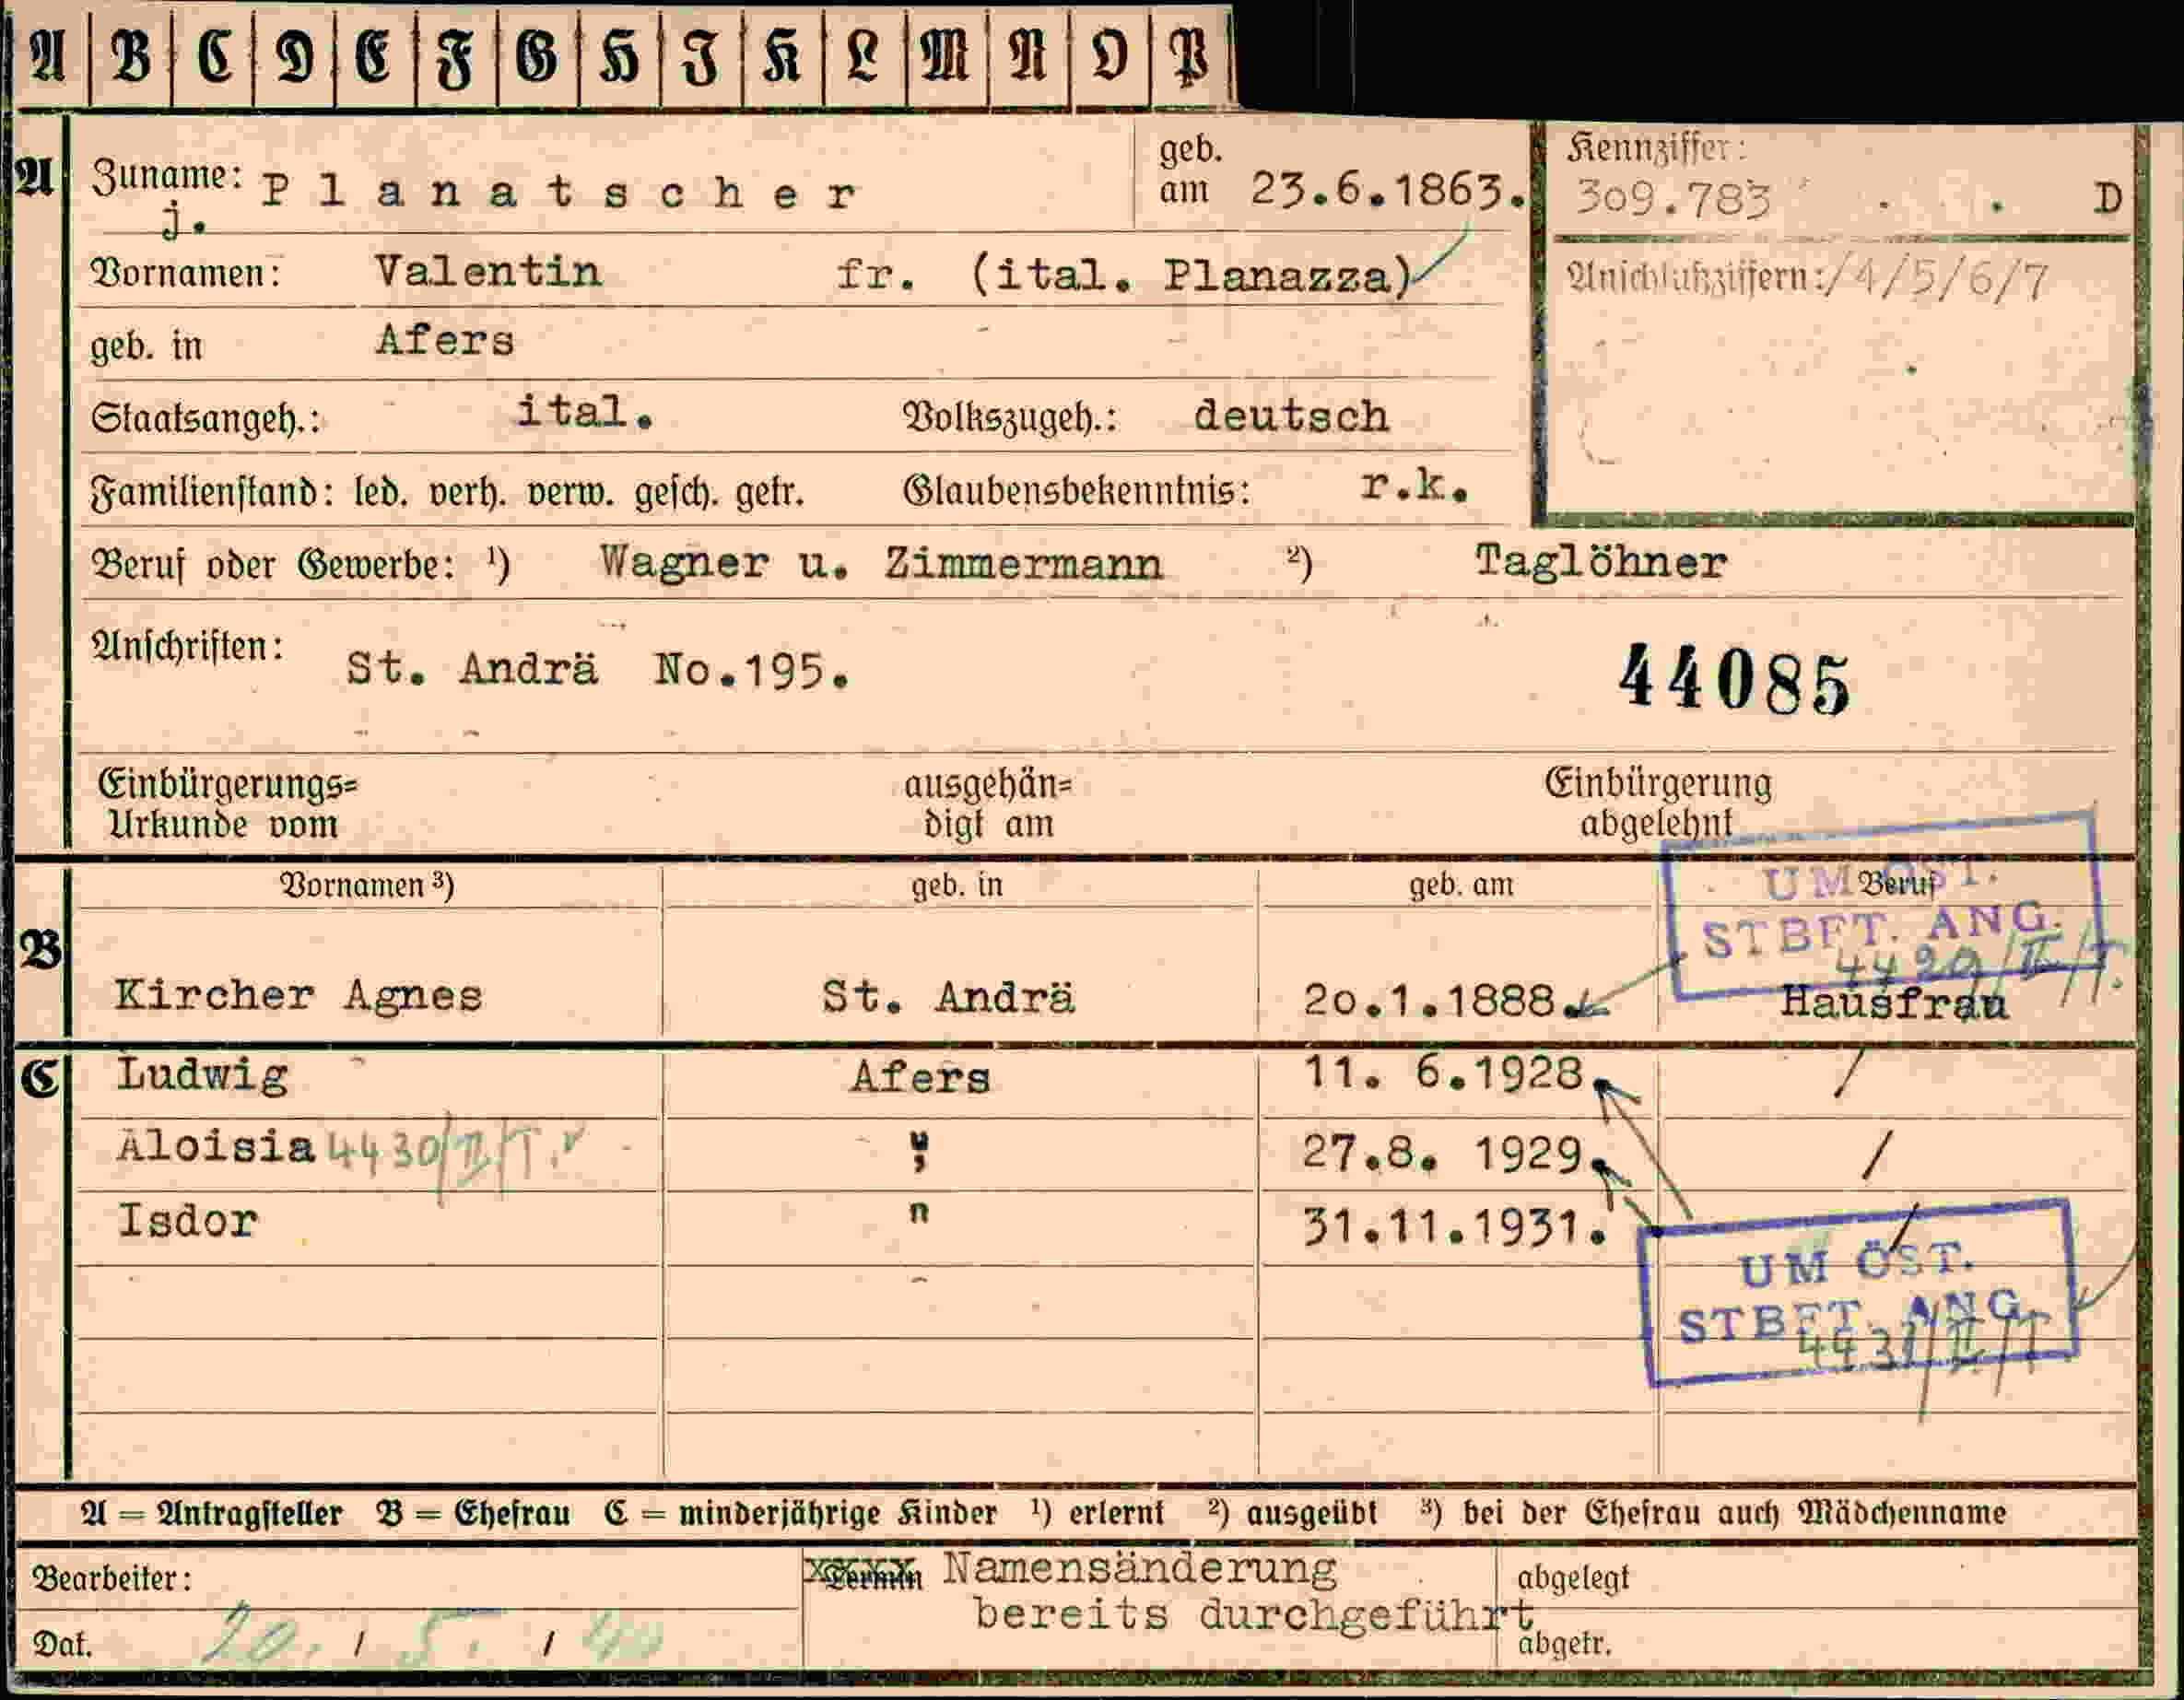 A B C D E F G H J K L M N O P
A Zuname: Planatscher geb. am 23.6.1863. Kennziffer: 309.783 . . D
j.
Vornamen: Valentin fr. (ital. Planazza) Anschlußziffern: /4/5/6/7
geb. in Afers
Staatsangeh.: ital. Volkszugeh.: deutsch
Familienstand: led. verh. verw. gesch. getr. Glaubensbekenntnis: r.k.
Beruf oder Gewerbe: ¹) Wagner u. Zimmermann ²) Taglöhner
Anschriften: St. Andrä No.195. 44085
Einbürgerungs= ausgehän= Einbürgerung
Urkunde vom digt am abgelehnt
Vornamen ³) geb. in geb. am Beruf
UM ÖST.
STBFT. ANG.
4429/II/T.
B Kircher Agnes St. Andrä 20.1.1888. Hausfrau
C Ludwig Afers 11. 6.1928. /
Aloisia 4430/II/T. " 27.8. 1929. /
Isdor " 31.11.1931. /
UM ÖST.
STBFT. ANG.
4431/II/T
A = Antragsteller B = Ehefrau C = minderjährige Kinder ¹) erlernt ²) ausgeübt ³) bei der Ehefrau auch Mädchenname
Bearbeiter: Termin Namensänderung abgelegt
bereits durchgeführt
Dat. 20. / 5. / 40 abgetr.